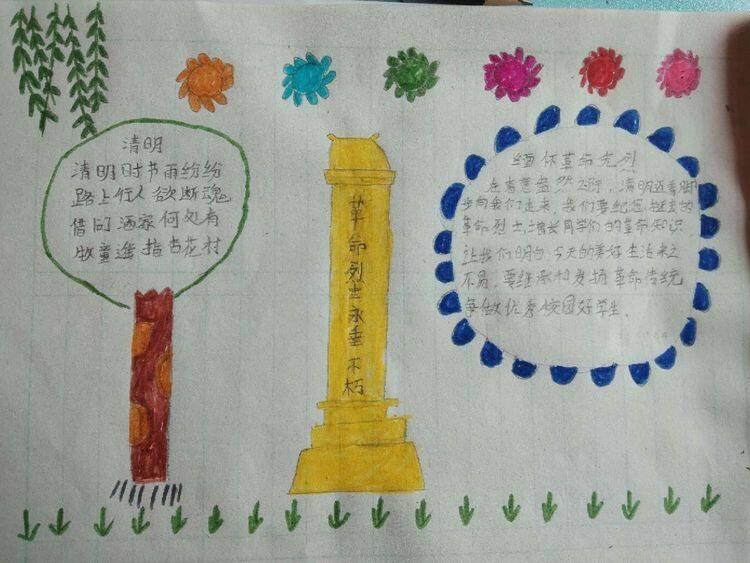 清明
清明时节雨纷纷
路上行人欲断魂
借问酒家何处有
牧童遥指杏花村
革命烈士永垂不朽
缅怀革命先烈
在春意盎然之际,清明迈着脚
步向我们走来,我们要纪念去的
革命烈士,增长同学们的革命知识
让我们明白,今天的美好生活来之
不易,要继承和发扬革命传统
争做优秀校园好学生.